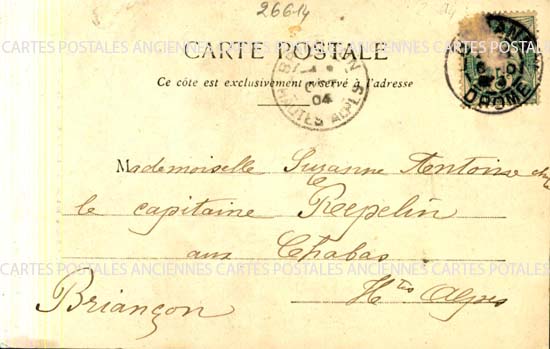 26614
CARTE POSTALE
Ce côté est exclusivement réservé à l'adresse
BRIANÇON
04
HAUTES ALPES
DROME
Mademoiselle Suzanne Antoine chez
le capitaine Repelin
aux Chabas
Briançon Htes Alpes
CARTES POSTALES ANCIENNES CARTES POSTALES ANCIENNES CARTES POSTALES
CARTES POSTALES ANCIENNES CARTES POSTALES ANCIENNES CARTES POTALES